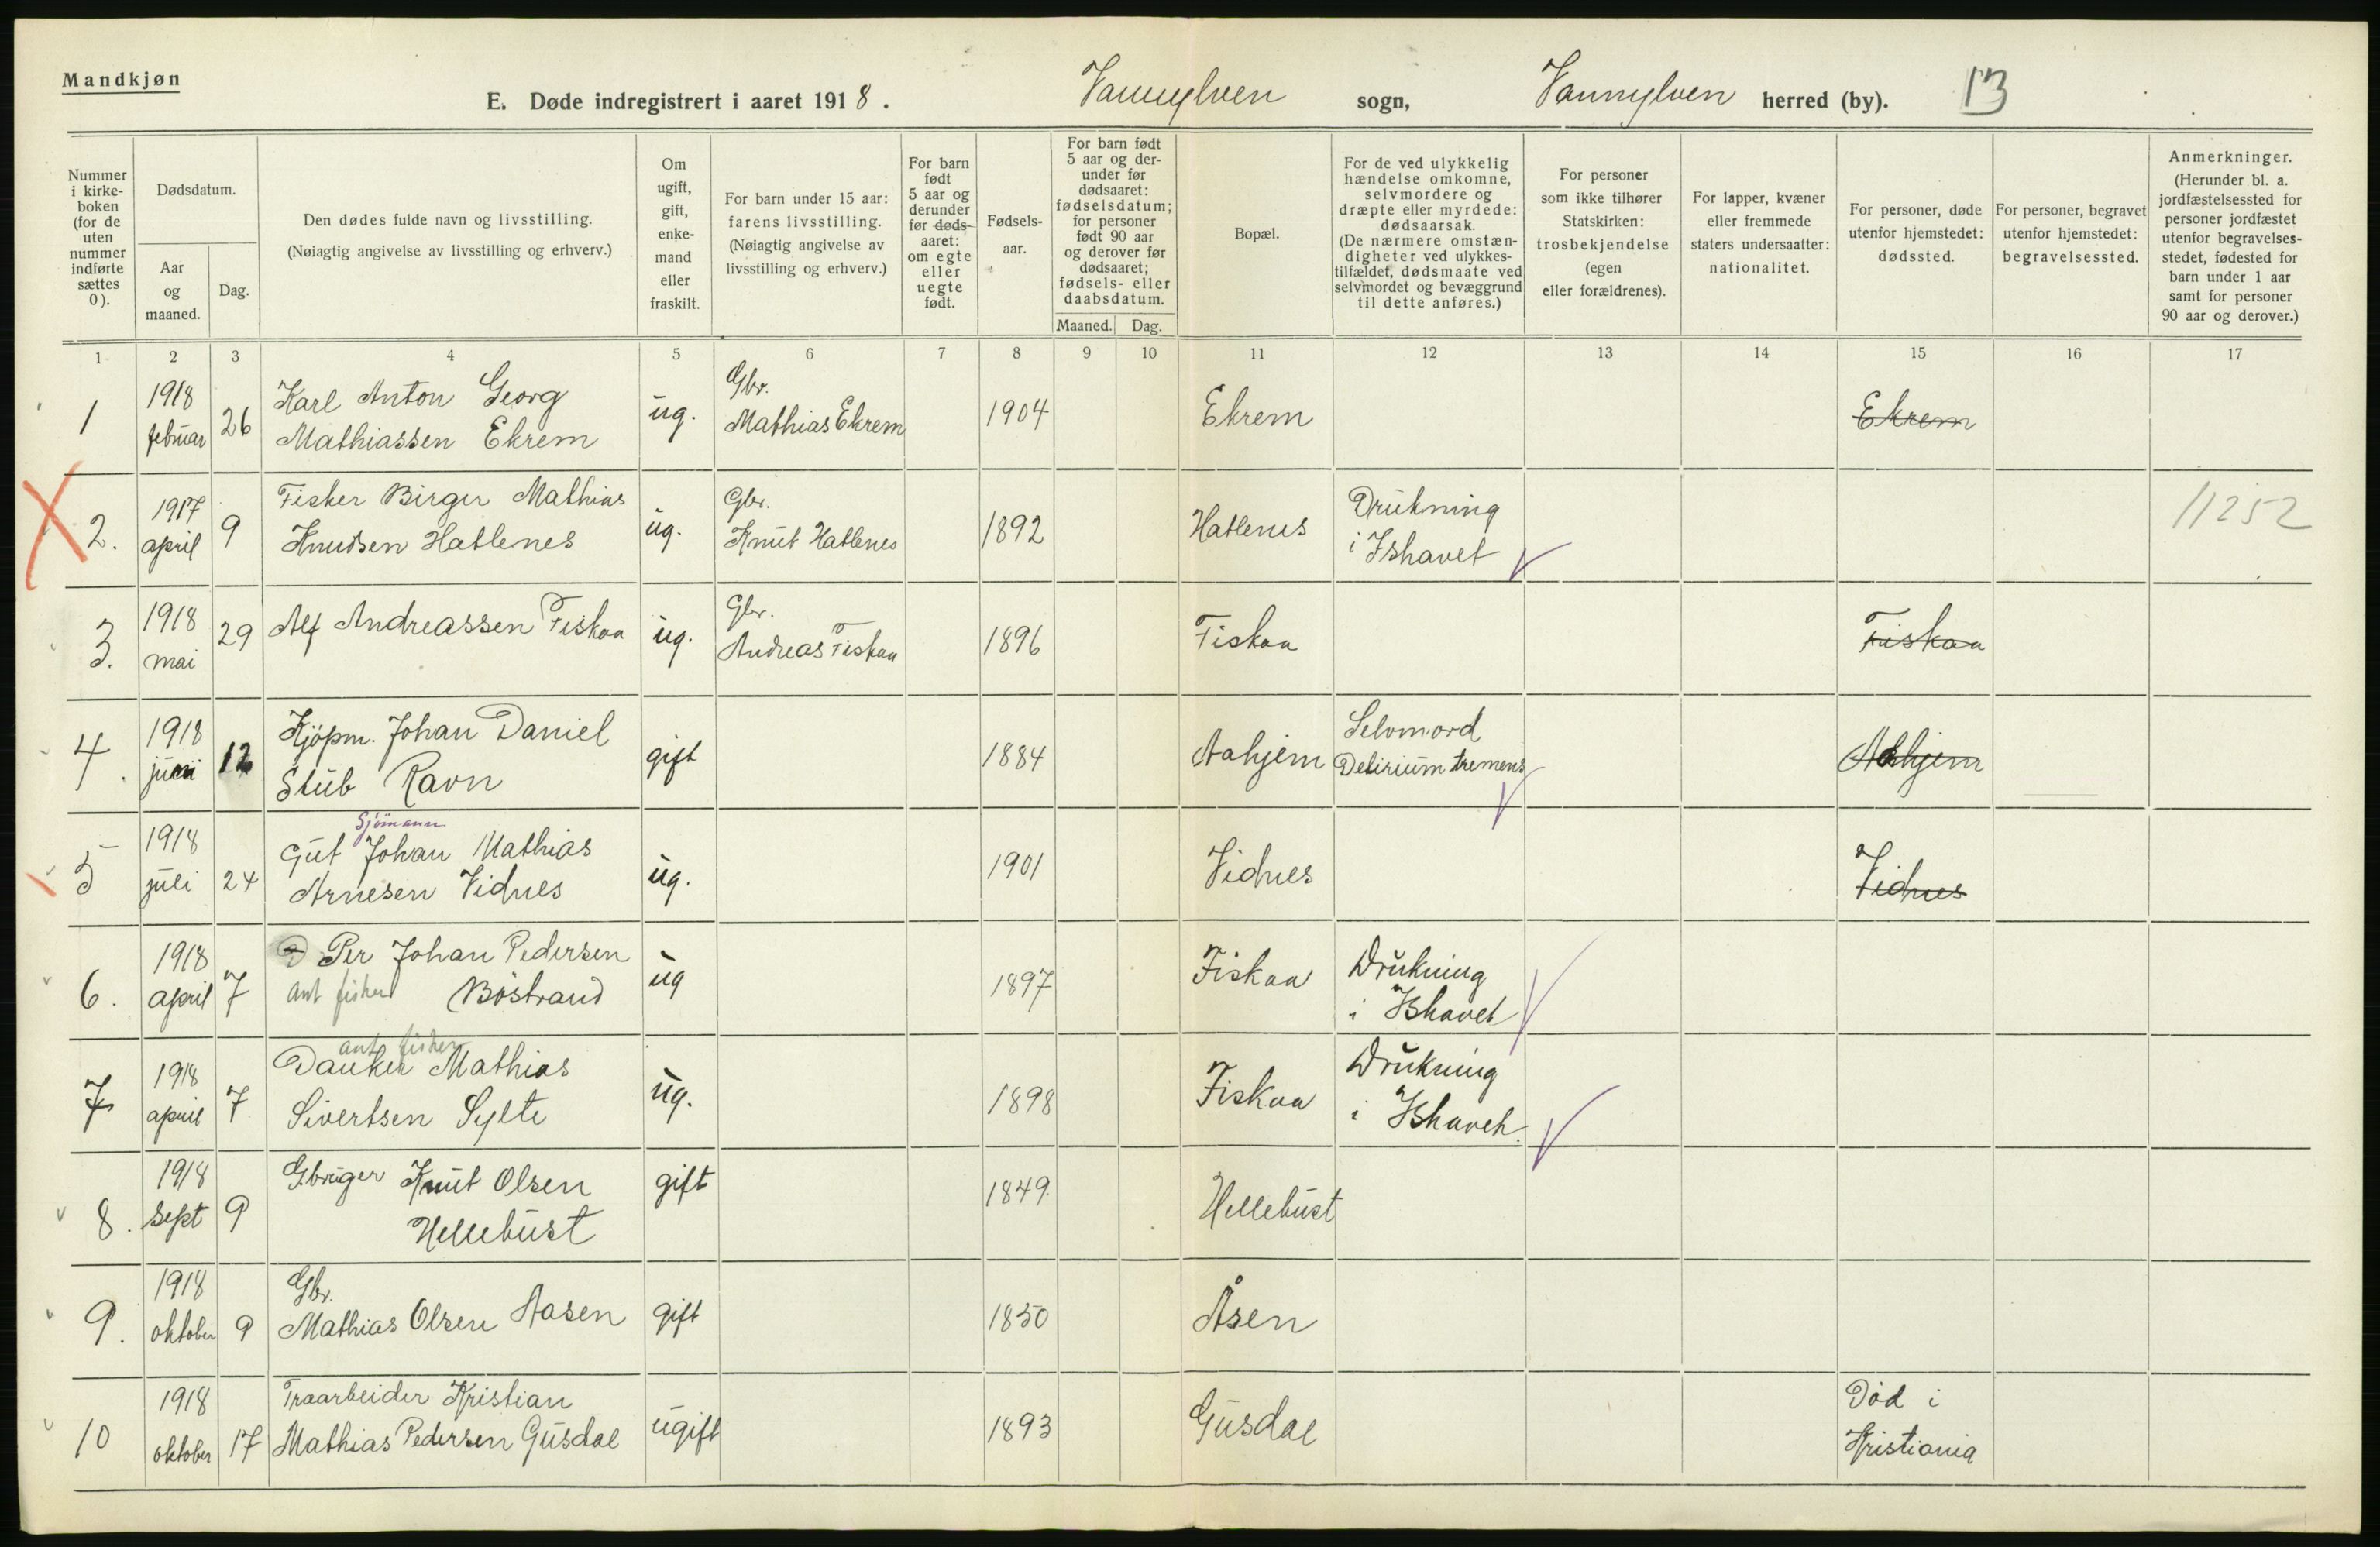 Mandkjøn
E. Døde indregistrert i aaret 1918. Vannylven sogn, Vannylven herred (by). 13
Nummer i kirkeboken (for de uten nummer indførte sættes 0).
Dødsdatum.
Aar og maaned.
Dag.
Den dødes fulde navn og livsstilling.
(Nøiagtig angivelse av livsstilling og erhverv.)
Om ugift, gift, enkemand eller fraskilt.
For barn under 15 aar: farens livsstilling.
(Nøiagtig angivelse av livsstilling og erhverv.)
For barn født 5 aar og derunder før døds-aaret: om egte eller uegte født.
Fødsels-aar.
For barn født 5 aar og derunder før dødsaaret: fødselsdatum; for personer født 90 aar og derover før dødsaaret; fødsels- eller daabsdatum.
Maaned. Dag.
Bopæl.
For de ved ulykkelig hændelse omkomne, selvmordere og dræpte eller myrdede: dødsaarsak.
(De nærmere omstændigheter ved ulykkestilfældet, dødsmaate ved selvmordet og bevæggrund til dette anføres.)
For personer som ikke tilhører Statskirken: trosbekjendelse (egen eller forældrenes).
For lapper, kvæner eller fremmede staters undersaatter: nationalitet.
For personer, døde utenfor hjemstedet: dødssted.
For personer, begravet utenfor hjemstedet: begravelsessted.
Anmerkninger.
(Herunder bl. a. jordfæstelsessted for personer jordfæstet utenfor begravelsesstedet, fødested for barn under 1 aar samt for personer 90 aar og derover.)
1 2 3 4 5 6 7 8 9 10 11 12 13 14 15 16 17
1 1918 februar 26 Karl Anton Georg Mathiassen Ekrem ug. Gbr. Mathias Ekrem 1904 Ekrem Ekrem
2. 1917 april 9 Fisker Birger Mathias Knudsen Hatlenes ug. Gbr. Knut Hatlenes 1892 Hatlenes Drukning i Ishavet 11252
3. 1918 mai 29 Alf Andreassen Fiskaa ug. Gbr. Andreas Fiskaa 1896 Fiskaa Fiskaa
4. 1918 juni 12 Kjöpm. Johan Daniel Stub Ravn gift 1884 Aahjem Selvmord Delirium tremens Aahjem
5 1918 juli 24 Sjömann Gut Johan Mathias Arnesen Vidnes ug. 1901 Vidnes Vidnes
6. 1918 april 7 D Per Johan Pedersen ant fisker Böstrand ug 1897 Fiskaa Drukning i Ishavet
7 1918 april 7 ant fisker Danker Mathias Sivertsen Sylte ug. 1898 Fiskaa Drukning i Ishavet.
8. 1918 sept 9 Gbruger Knut Olsen Hellebust gift 1849. Hellebust
9. 1918 oktober 9 Gbr. Mathias Olsen Aasen gift 1850 Åsen
10 1918 oktober 17 Traarbeider Kristian Mathias Pedersen Gusdal ugift 1893 Gusdal Död i Kristiania